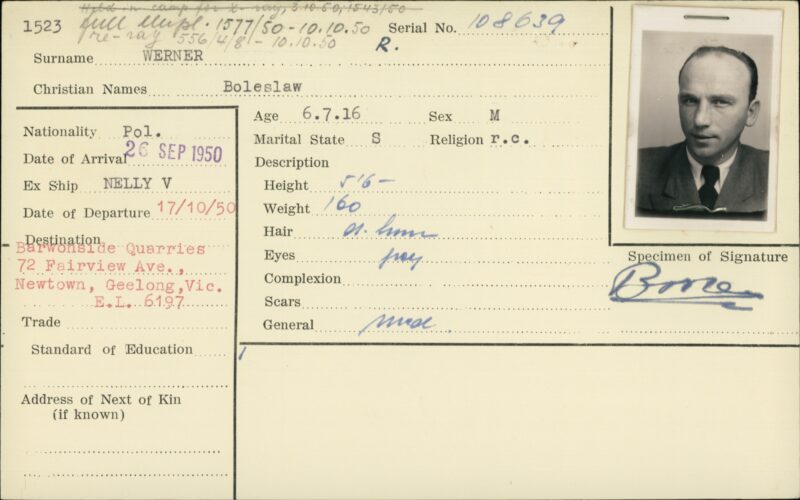 Held in camp for X-ray, 3.10.50, 1543/50
1523 full empl. 1577/50 - 10.10.50 Serial No. 108639
re-ray 556/4/8 - 10.10.50 R.
Surname WERNER
Christian Names Boleslaw
Nationality Pol.
Date of Arrival 26 SEP 1950
Ex Ship NELLY V
Date of Departure 17/10/50
Destination
Barwonside Quarries
72 Fairview Ave.,
Newtown, Geelong, Vic.
E.L. 6197
Trade
Standard of Education
Address of Next of Kin
(if known)
Age 6.7.16 Sex M
Marital State S Religion r.c.
Description
Height 5'6-
Weight 160
Hair
Eyes grey
Complexion
Scars
General med.
Specimen of Signature